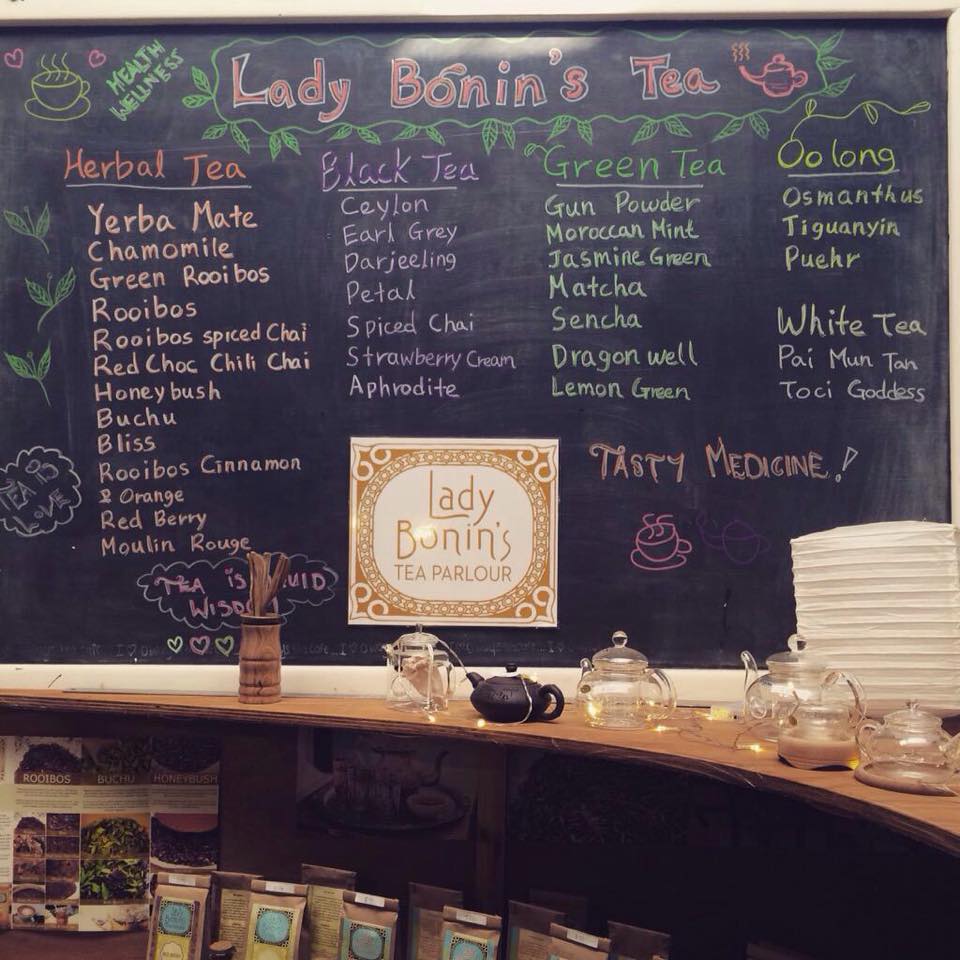 HEALTH
WELLNESS
Lady Bónin's Tea
Herbal Tea
Yerba Mate
Chamomile
Green Rooibos
Rooibos
Rooibos spiced Chai
Red Choc Chili Chai
Honeybush
Buchu
Bliss
Rooibos Cinnamon
& Orange
Red Berry
Moulin Rouge
Black Tea
Ceylon
Earl Grey
Darjeeling
Petal
Spiced Chai
Strawberry Cream
Aphrodite
Green Tea
Gun Powder
Moroccan Mint
Jasmine Green
Matcha
Sencha
Dragon well
Lemon Green
Oolong
Osmanthus
Tiguanyin
Puehr
White Tea
Pai Mun Tan
Toci Goddess
TEA IS
LOVE
TASTY MEDICINE!
Lady
Bōnin's
TEA PARLOUR
TEA IS
ROOIBOS BUCHU HONEYBUSH
Lady
Bonin's